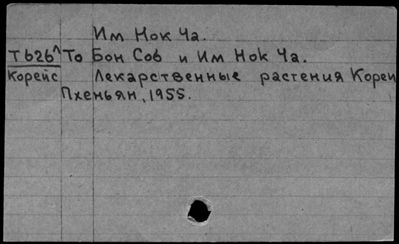 Им Нок Ча.
Т626^ То Бон Сов и Им Нок Ча.
Корейс Лекарственные растения Кореи
Пхеньян, 1955.